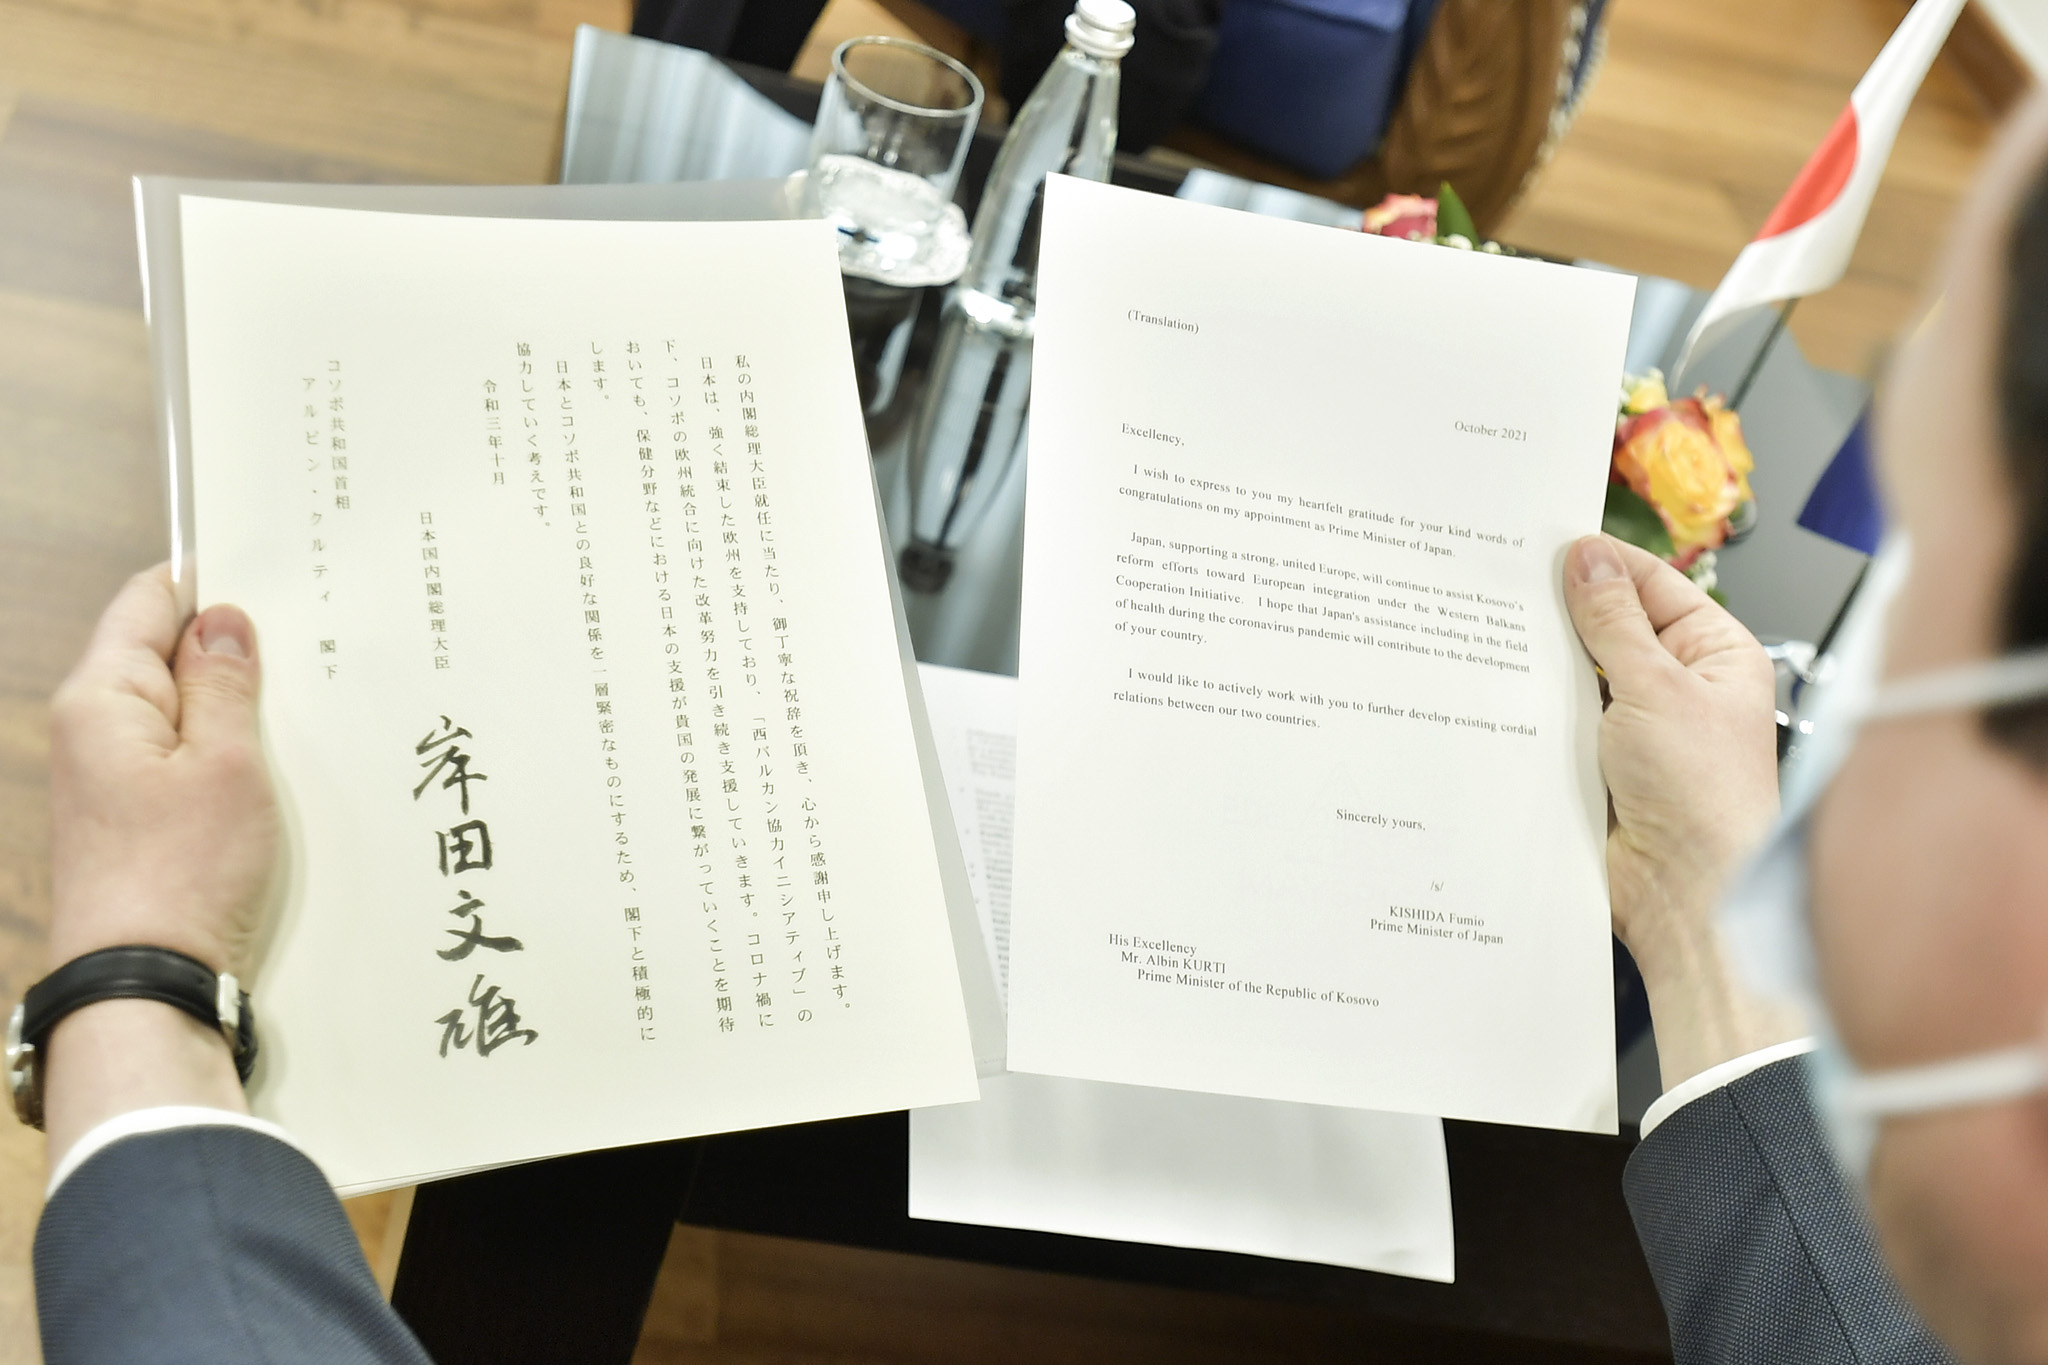 私の内閣総理大臣就任に当たり、御丁寧な祝辞を頂き、心から感謝申し上げます。
日本は、強く結束した欧州を支持しており、「西バルカン協力イニシアティブ」の
下、コソボの欧州統合に向けた改革努力を引き続き支援していきます。コロナ禍に
おいても、保健分野などにおける日本の支援が貴国の発展に繋がっていくことを期待
します。
日本とコソボ共和国との良好な関係を一層緊密なものにするため、閣下と積極的に
協力していく考えです。
令和三年十月
日本国内閣総理大臣
岸田文雄
コソボ共和国首相
アルビン・クルティ 閣下
(Translation)
October 2021
Excellency,
I wish to express to you my heartfelt gratitude for your kind words of
congratulations on my appointment as Prime Minister of Japan.
Japan, supporting a strong, united Europe, will continue to assist Kosovo's
reform efforts toward European integration under the Western Balkans
Cooperation Initiative. I hope that Japan's assistance including in the field
of health during the coronavirus pandemic will contribute to the development
of your country.
I would like to actively work with you to further develop existing cordial
relations between our two countries.
Sincerely yours,
/s/
KISHIDA Fumio
Prime Minister of Japan
His Excellency
Mr. Albin KURTI
Prime Minister of the Republic of Kosovo